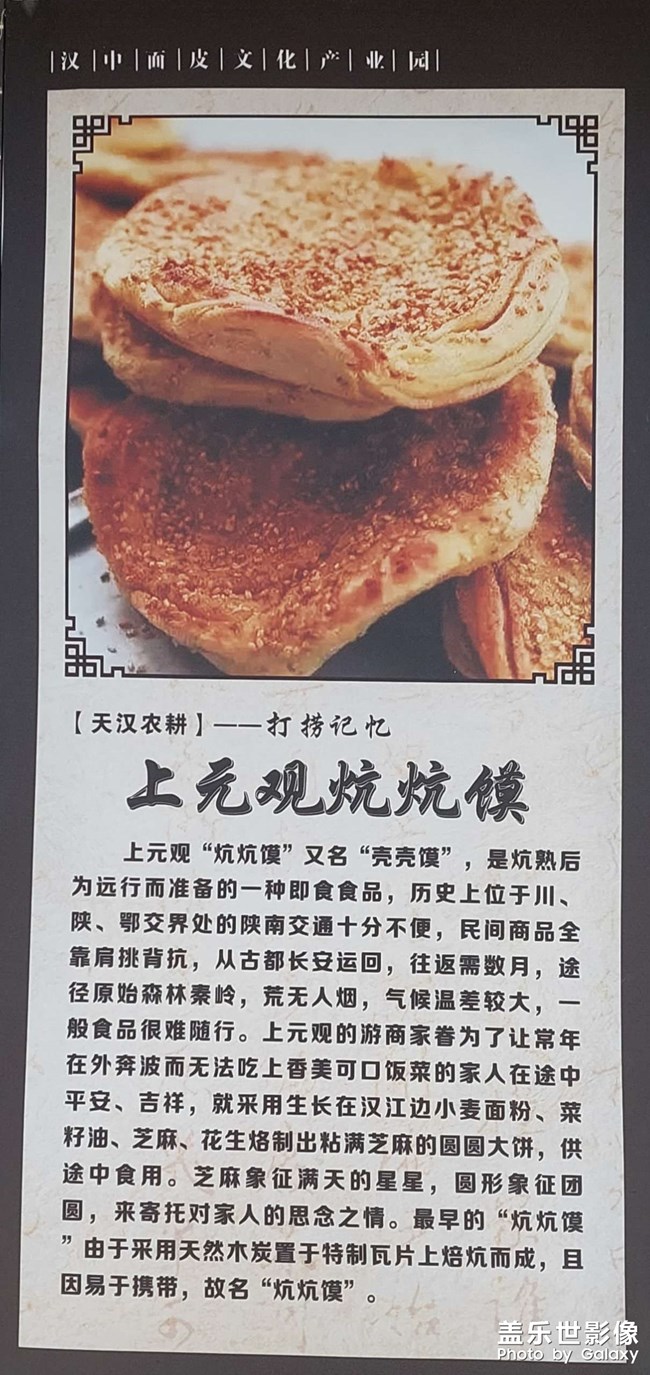 汉中面皮文化产业园
【天汉农耕】——打捞记忆
上元观炕炕馍
上元观“炕炕馍”又名“壳壳馍”，是炕熟后
为远行而准备的一种即食食品，历史上位于川、
陕、鄂交界处的陕南交通十分不便，民间商品全
靠肩挑背抗，从古都长安运回，往返需数月，途
径原始森林秦岭，荒无人烟，气候温差较大，一
般食品很难随行。上元观的游商家眷为了让常年
在外奔波而无法吃上香美可口饭菜的家人在途中
平安、吉祥，就采用生长在汉江边小麦面粉、菜
籽油、芝麻、花生烙制出粘满芝麻的圆圆大饼，供
途中食用。芝麻象征满天的星星，圆形象征团
圆，来寄托对家人的思念之情。最早的“炕炕馍
”由于采用天然木炭置于特制瓦片上焙炕而成，且
因易于携带，故名“炕炕馍”。
盖乐世影像
Photo by Galaxy